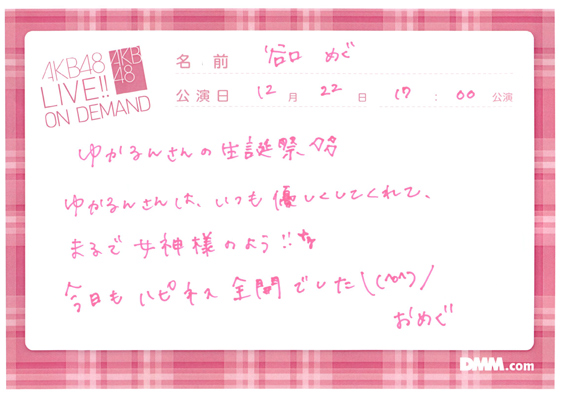 AKB48
LIVE!!
ON DEMAND
AKB
48
名 前 谷口 めぐ
公演日 12 月 22 日 17 : 00 公演
ゆかるんさんの生誕祭
ゆかるんさんは、いつも優しくしてくれて、
まるで女神様のよう!!
今日もハピネス全開でした\(^o^)/
おめぐ
DMM.com